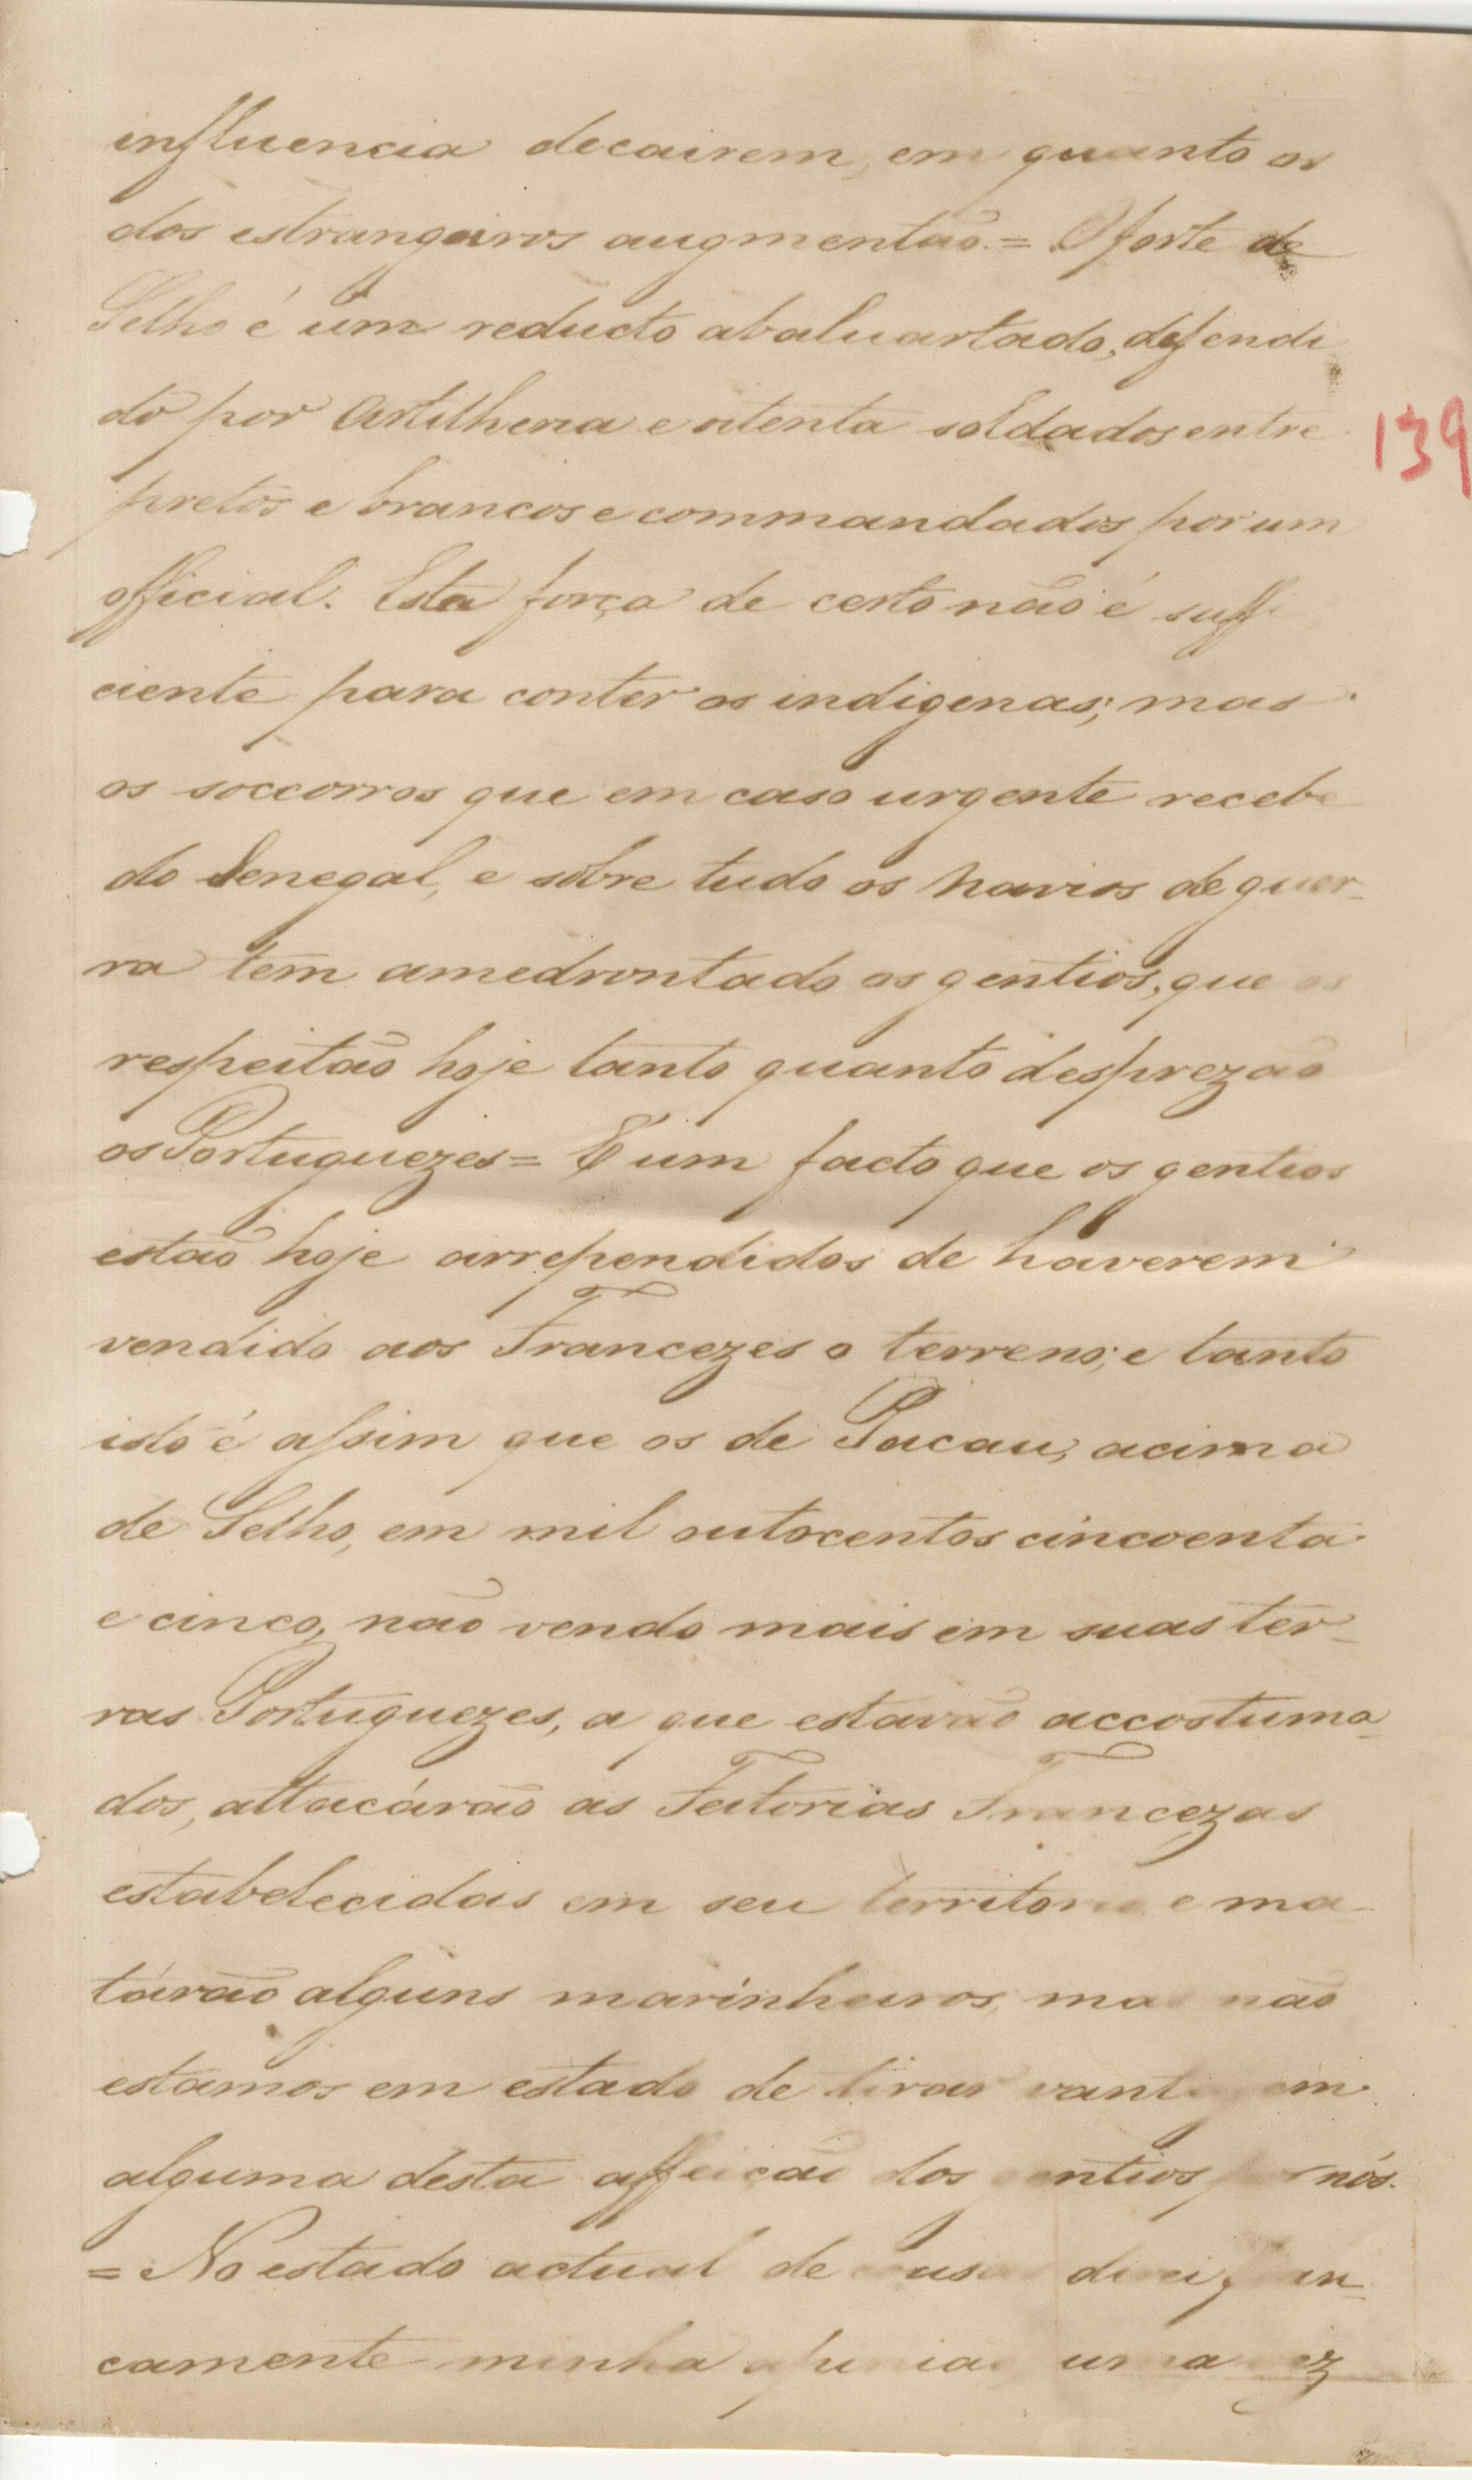 influencia decairem, em quanto os
dos estrangeiros augmentão. = O forte de
Selho é um reducto abaluartado, defendi
do por Artilheria e oitenta soldados entre
pretos e brancos e commandados por um
official. Esta força de certo não é suffi
ciente para conter os indigenas; mas
os soccorros que em caso urgente recebe
do Senegal, e sobre tudo os navios de guer-
ra tem amedrontado os gentios, que os
respeitão hoje tanto quanto desprezão
os Portuguezes = É um facto que os gentios
estão hoje arrependidos de haverem
vendido aos Francezes o terreno; e tanto
isto é assim que os de Pacau, acima
de Selho, em mil outocentos cincoenta
e cinco, não vendo mais em suas ter-
ras Portuguezes, a que estavão accostuma-
dos, attacárão as Feitorias Francezas
estabelecidas em seu territorio e ma-
tárão alguns marinheiros, mas não
estamos em estado de tirar vantagem
alguma desta affeição dos gentios por nós.
= No estado actual de cousas direi fran-
camente minha opinião, uma vez
139